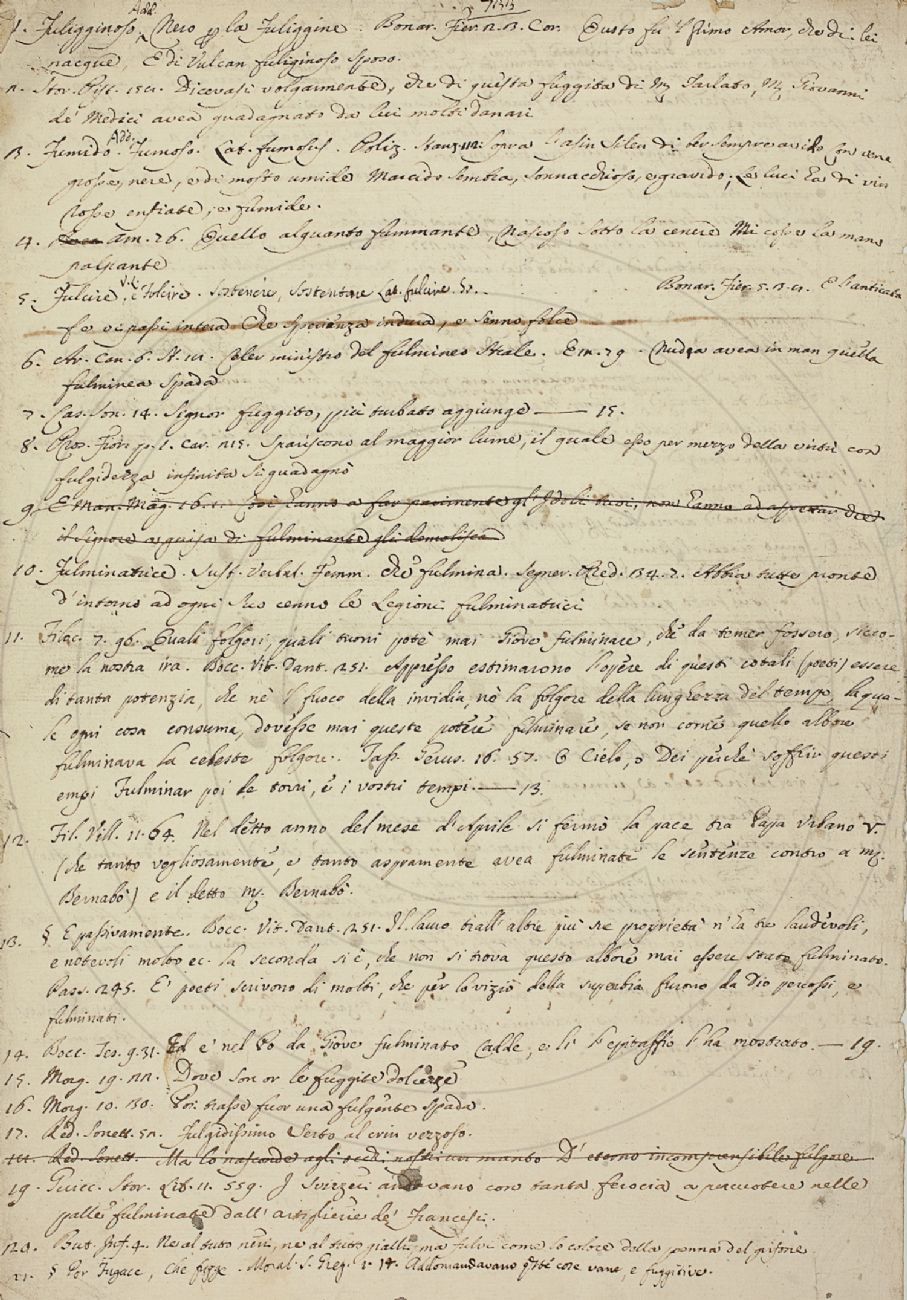 Add. 7515
1. Fuligginoso, Nero per la fuliggine. Bonar. Fier. 2. 3. Cor. Questo fu 'l primo Amor, che di lei
nacque, E di Vulcan fuliginoso sposo.
2. Stor. Pist. Dicevasi volgarmente, che di questa fuggita di M. Tarlato, M. Giovanni
de' Medici avea guadagnato da lui molti danari
Add.
3. Fumido. Fumoso. Lat. fumosus. Poliz. Stanz. 112. Sopra l'asin Silen di ber sempre avido Con vene
grosse, nere, e di mosto umide Marcido sembra, sonnacchioso, e gravido; Le luci ha di vin
rosse enfiate, e fumide.
4. Am. 26. Quello alquanto fummante, Nascoso sotto la cenere Mi cosse la mano
palpante
5. Fulcire, v. L. e Folcire. Sostenere, Sostentare Lat. fulcire. Bonar. Fier. 5. E l'anticata
fe vi passi intera Che speranza induca, e senno folce
6. Ar. Cau. 6. ministro del fulmineo strale. Em. 29. Nuda avea in man quella
fulminea spada
7. Cas. Son. 14. Signor fuggito, più turbato aggiunge — 15.
8. Fior. p. 1. car. 215. Spariscono al maggior lume, il quale esso per mezzo della virtù con
fulgidezza infinita si guadagnò
9. Mann. Mag. 16. 1. a far pavimento gl'Idoli tuoi, non hanno ad aspettar che
il Signore a guisa di fulminante gli demolisca
10. Fulminatrice. Sust. Verbal. Femm. Che fulmina. Segner. Pred. 134. 2. Abbia tutte pronte
d'intorno ad ogni suo cenno le Legioni fulminatrici
11. Filoc. 7. 96. Quali folgori, quali tuoni potè mai Giove fulminare, che da temer fossero, sicco-
me la nostra ira. Bocc. Vit. Dant. 251. Appresso estimarono l'opere di questi cotali (poeti) essere
di tanta potenzia, che nè 'l fuoco della invidia, nè la folgore della lunghezza del tempo, la qua-
le ogni cosa consuma, dovesse mai queste potere fulminare, se non come quello albore
fulminava la celeste folgore. Tass. Gerus. 16. 57. O Cielo, o Dei perchè soffrir questi
empi Fulminar poi le torri, e i vostri tempi. — 13.
12. Fil. Vill. 11. 64. Nel detto anno del mese d'Aprile si fermò la pace tra Papa Urbano V.
(che tanto vogliosamente, e tanto aspramente avea fulminate le sentenze contro a M.
Bernabò) e il detto M. Bernabò.
13. § E passivamente. Bocc. Vit. Dant. 251. Il lauro trall'altre più sue proprietà n'ha tre laudevoli,
e notevoli molto ec. la seconda si è, che non si trova questo albore mai essere stato fulminato.
Pass. 245. E' poeti scrivono di molti, che per lo vizio della superbia furono da Dio percossi, e
fulminati.
14. Bocc. Tes. 9. 31. Ed e' nel Po da Giove fulminato Cadde, e lì l'epitaffio l'ha mostrato — 19.
15. Morg. 19. 22. Dove son or le fuggite dolcezze
16. Morg. 10. 130. Poi trasse fuor una fulgente spada.
17. Red. Sonett. 52. Fulgidissimo serto al crin vezzoso.
Red. Sonett. Ma lo nasconde agli occhi nostri un manto D'eterno incomprensibile fulgore
19. Guicc. Stor. Lib. 11. 559. I Svizzeri andavano con tanta ferocia a percuotere nelle
palle fulminate dall'artiglierie de' Francesi.
120. But. Inf. 4. Ne al tutto neri, ne al tutto gialli, ma fulvi come lo colore della penna del grifone
21. § Per Fugace, Che fugge. Moral. S. Greg. 1. 14. Addomandavano queste cose vane, e fuggitive.